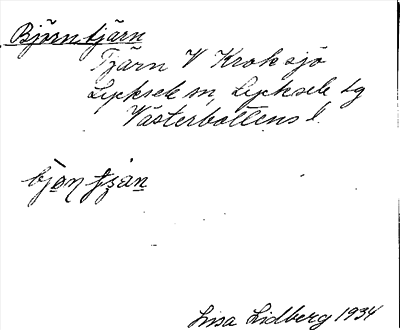 Björntjärn
Tjärn V Kroksjö
Lycksele sn, Lycksele lg
Västerbottens l.
Lisa Lidberg 1934